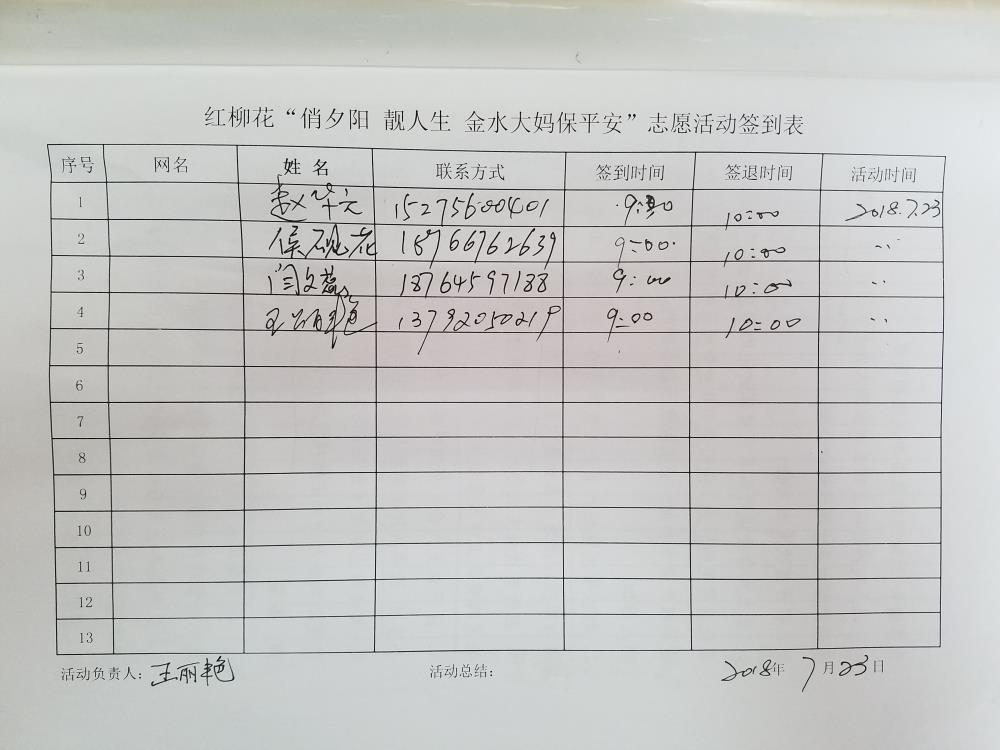 红柳花“俏夕阳 靓人生 金水大妈保平安”志愿活动签到表
序号 网名 姓名 联系方式 签到时间 签退时间 活动时间
1 赵华云 15275600401 9:00 10:00 2018.7.23
2 侯砚花 15966762639 9:00 10:00 〃
3 闫文蕊 18764597188 9:00 10:00 〃
4 王丽艳 13792050219 9:00 10:00 〃
5
6
7
8
9
10
11
12
13
活动负责人：王丽艳 活动总结： 2018年 7月23日